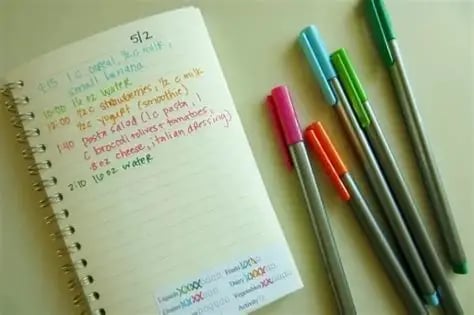 5/2
9:15 1 c cereal, ½ c milk,
small banana
10:50 16 oz water
12:00 ½ c strawberries, ½ c milk
½ c yogurt (smoothie)
1:40 pasta salad (1 c pasta, 1
c brocoli + olives + tomatoes,
.8 oz cheese, italian dressing)
2:10 16 oz water
Liquids Fruits
Grains Dairy
Vegetables
Activity